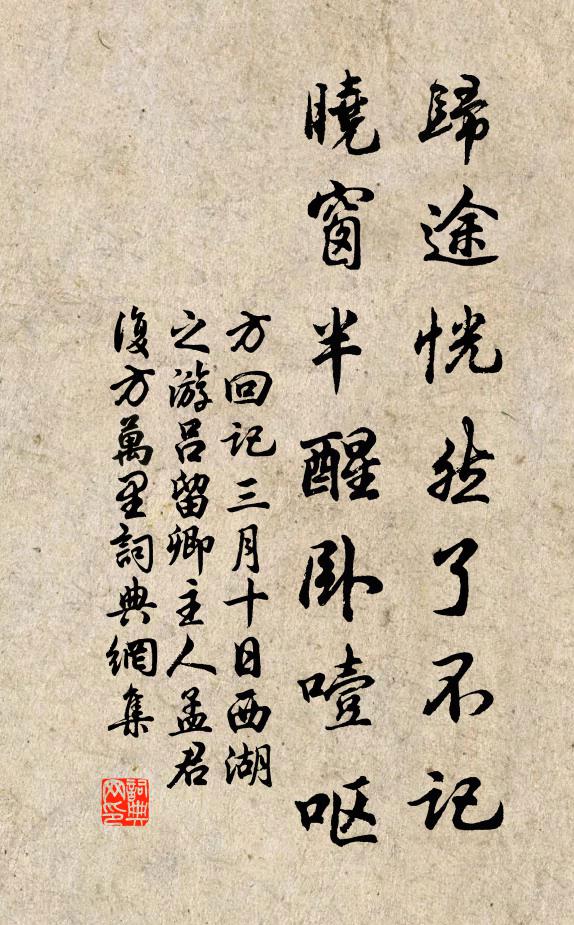 歸途恍然了不记
曉窗半醒卧噎呕
方回记三月十日西湖
之游吕留卿主人孟君
復方萬里詞典網集
詞典
网印